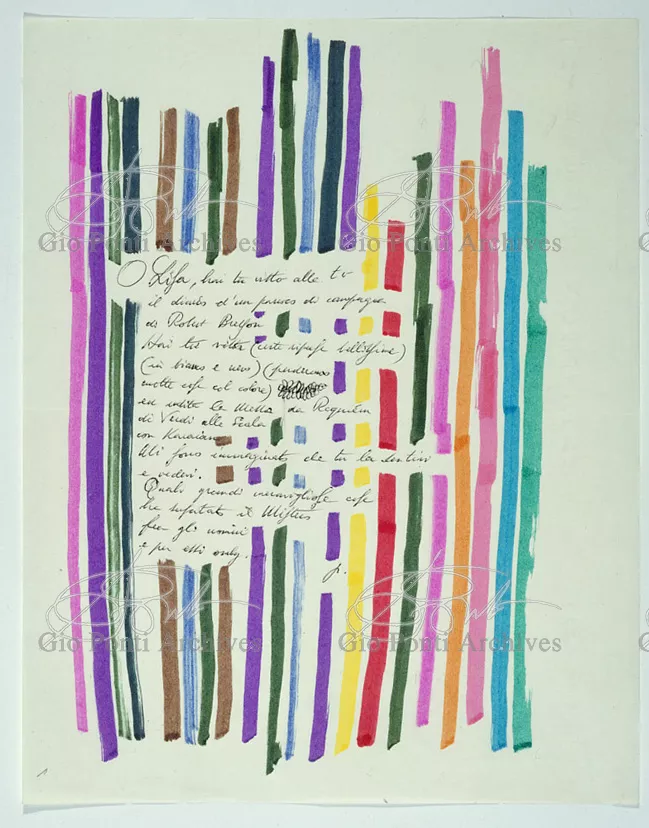 O Lisa, hai tu visto alla tv
il diario d'un parroco di campagna
di Robert Bresson
Hai tu visto (certe riprese bellissime)
(in bianco e nero) (perderemo
molte cose col colore)
ed udito la Messa da Requiem
di Verdi alla Scala
con Karaian
Mi sono immaginato che tu la sentissi
e vedessi.
Quali grandi meravigliose cose
ha suscitato il Mistero
fra gli uomini
e per essi only.
g.
Gio Ponti Archives Gio Ponti Archives
Gio Ponti Archives Gio Ponti Archives